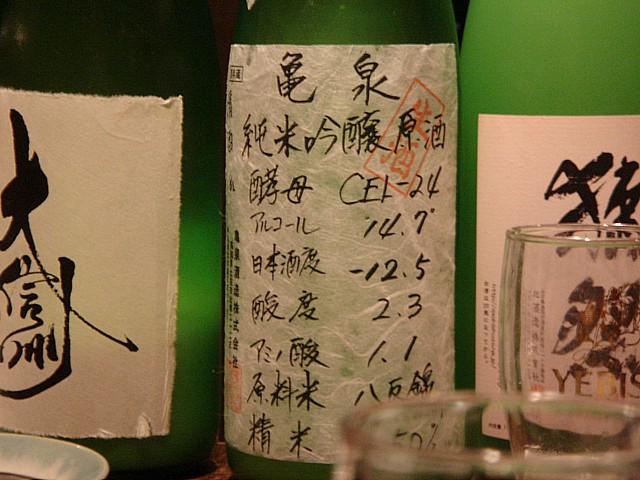 大
信
州
亀泉
純米吟醸原酒
生酒
酵母 CEL-24
アルコール 14.7°
日本酒度 -12.5
酸度 2.3
アミノ酸 1.1
原料米 八反錦
精米 50%
亀泉酒造株式会社
YEBIS